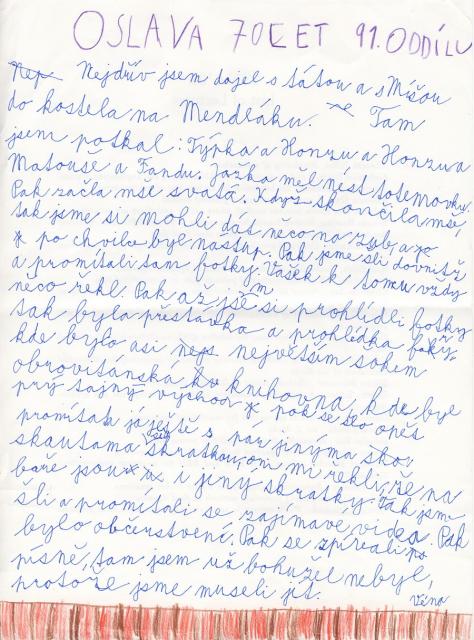 OSLAVA 70 LET 91. ODDÍLU
Nejdřív jsem dojel s tátou a s Míšou
do kostela na Mendláku. Tam
jsem potkal: Týpka a Honzu a Honzu a
Matouše a Fandu. Jažka měl nést totemovku.
Pak začla mše svatá. Když skončila mše,
tak jsme si mohli dát něco na zub, a
po chvilce byl nástup. Pak jsme šli dovnitř,
a promítali tam fotky. Vašek k tomu vždy
něco řekl. Pak až jsme si prohlídli fotky
tak byla přestávka a prohlídka
kde bylo asi největším šokem
obrovitánská knihovna, kde byl
prý tajný východ pak se šlo opět
promítat já ještě s pár jinýma
skautama zkratkou, oni mi řekli, že na
baře jsou i jiný zkratky. Tak jsme
šli a promítali se zajímavé videa. Pak
bylo občerstvení. Pak se zpívali
písně, tam jsem už bohužel nebyl,
protože jsme museli jít.
Véna